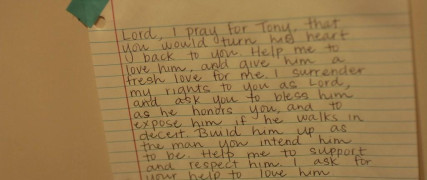 Lord, I pray for Tony, that
you would turn his heart
back to you. Help me to
love him, and give him a
fresh love for me. I surrender
my rights to you as Lord,
and ask you to bless him
as he honors you, and to
expose him if he walks in
deceit. Build him up as
the man you intend him
to be. Help me to support
and respect him. I ask for
your help to love him